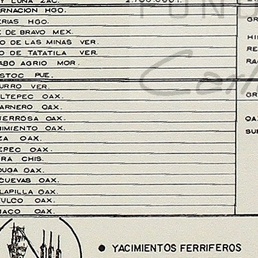 Y LUNA ZAC. 2.700.000 T.
ARNACION HGO.
ERIAS HGO.
E DE BRAVO MEX.
O DE LAS MINAS VER.
O DE TATATILA VER.
ABO AGRIO MOR.
STOC PUE.
URRO VER.
LTEPEC OAX.
ARNERO OAX.
IERROSA OAX.
IMIENTO OAX.
ZA OAX.
EPEC OAX.
RA CHIS.
OUGA OAX.
CUEVAS OAX.
LAPILLA OAX.
ULCO OAX.
IACO OAX.
GR
HI
RE
RA
GR
OA
SU
● YACIMIENTOS FERRIFEROS